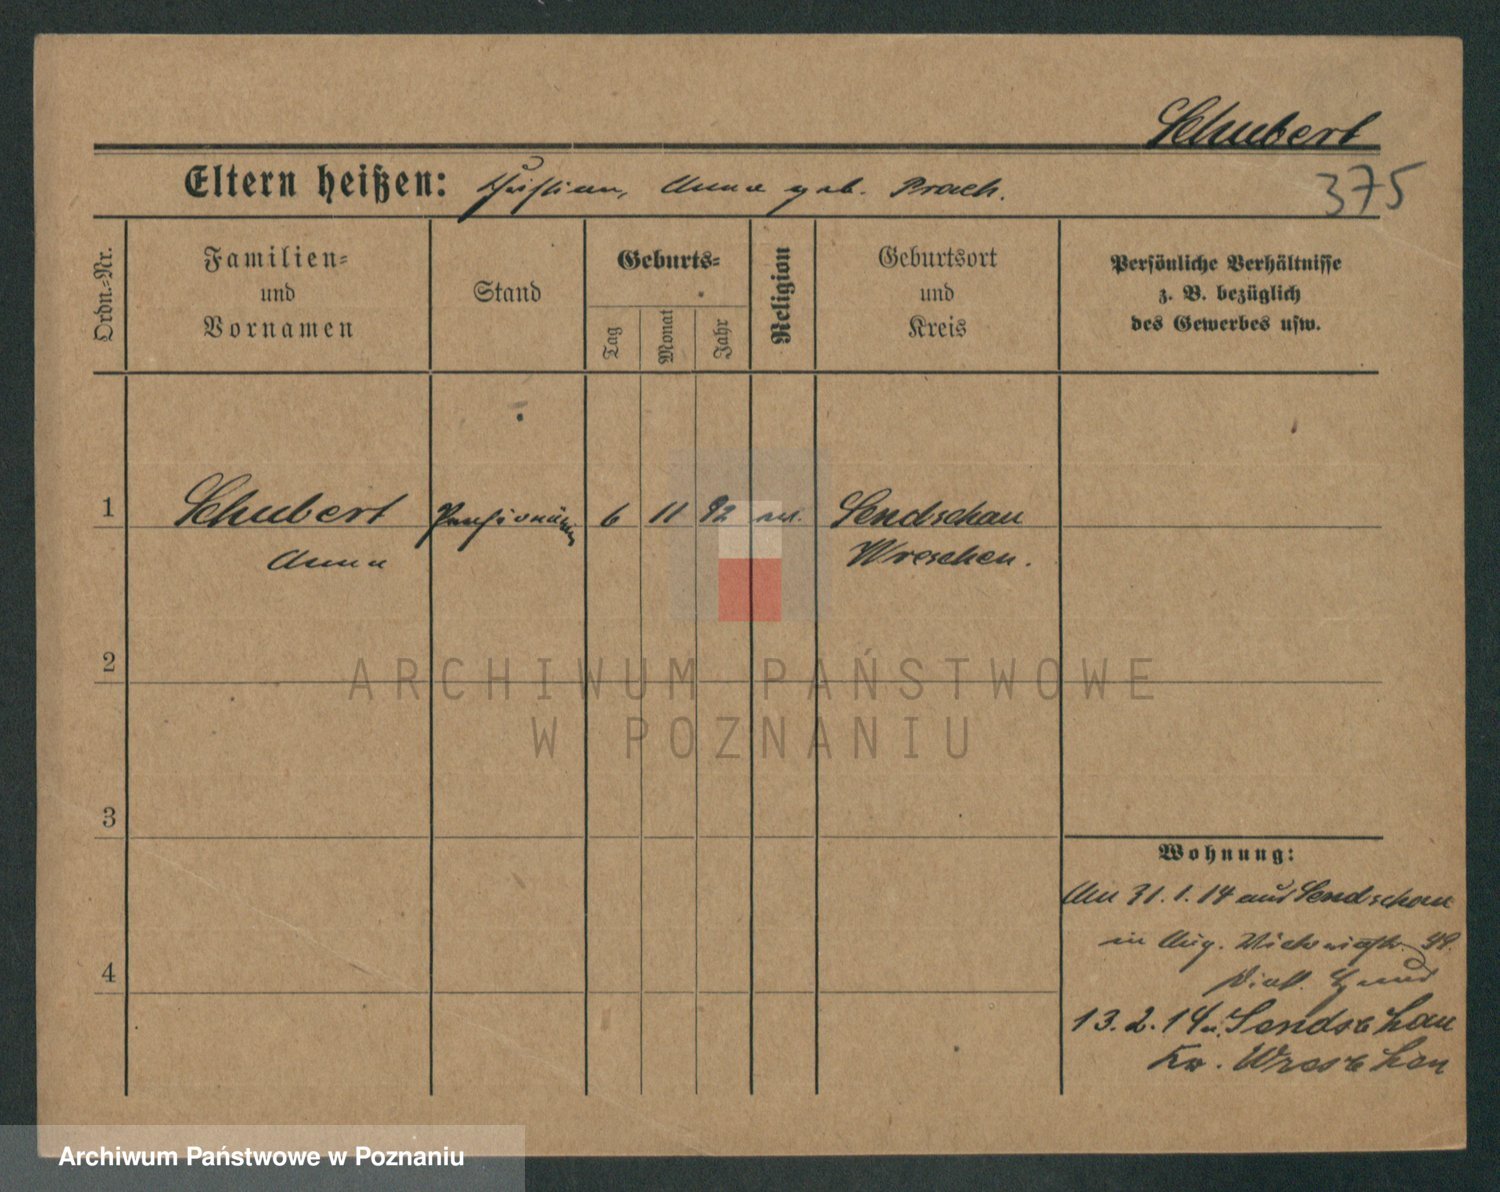 Schubert
Eltern heißen: Christian, Anna geb. Prach.
375
Ordn.-Nr.
Familien-
und
Vornamen
Stand
Geburts-
Tag
Monat
Jahr
Religion
Geburtsort
und
Kreis
Persönliche Verhältnisse
z. B. bezüglich
des Gewerbes usw.
1
Schubert
Anna
Pensionärin
6
11
92
Sendschau
Wreschen.
2
ARCHIWUM PAŃSTWOWE
W POZNANIU
3
4
Wohnung:
Am 31.1.14 aus Sendschau
in Aug.
13.2.14 n. Sendschau
Kr. Wreschen
Archiwum Państwowe w Poznaniu